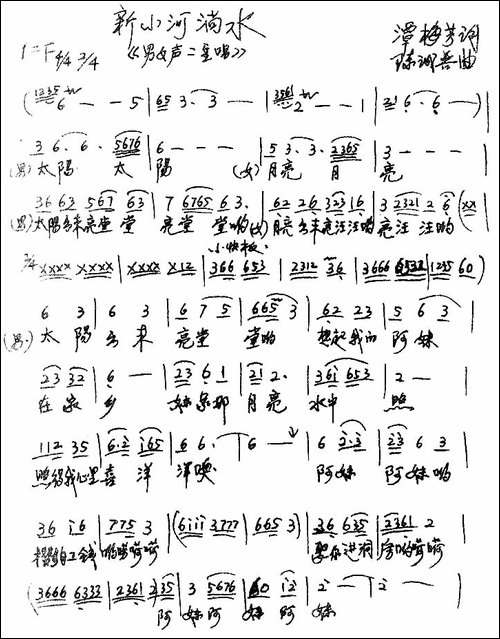 新小河淌水
《男女声二重唱》
1=F 4/4 3/4
潭梅芳词
曲
(1235 6 - - 5 | 65 3· 3 - - | 3561 2 - - 1 | 21 6· 6 - - )
3 6· 6· 5676 | 6 - - - | 5 3· 3· 2365 | 3 - - - |
(男)太阳 太 阳 (女)月亮 月 亮
36 63 567 63 | 7 6765 6 3· | 62 26 323 16 | 3 2321 2 6 (xx
(男)太阳出来亮堂堂 亮堂 堂哟(女)月亮出来亮汪汪哟亮汪 汪哟
小快板
3/4 xxxx xxxx | xxxx x12 | 366 653 | 2312 36 | 3666 6532 | 1235 60)
6 3 | 6 3 | 6 7 5 | 665 3 | 62 23 | 5 6 3 |
(男)太 阳 出 来 亮堂 堂哟 想起我的 阿 妹
23 32 | 6 - | 23 6 1 | 21 2· | 361 653 | 2 - |
在家 乡 妹家那 月亮 水中 照
112 35 | 6·2 165 | 6 6· | 6 - | 6 2·3 | 23 6 3 |
照得我心里喜 洋 洋噢 阿妹 阿妹哟
36 16 | 775 3 | (6111 3777 | 665 3) | 36 635 | 2361 2 |
(3666 6333 | 2361 235 | 3 5676 | 60 12 | 2 - | 2 - |
阿 妹阿 妹 阿 妹